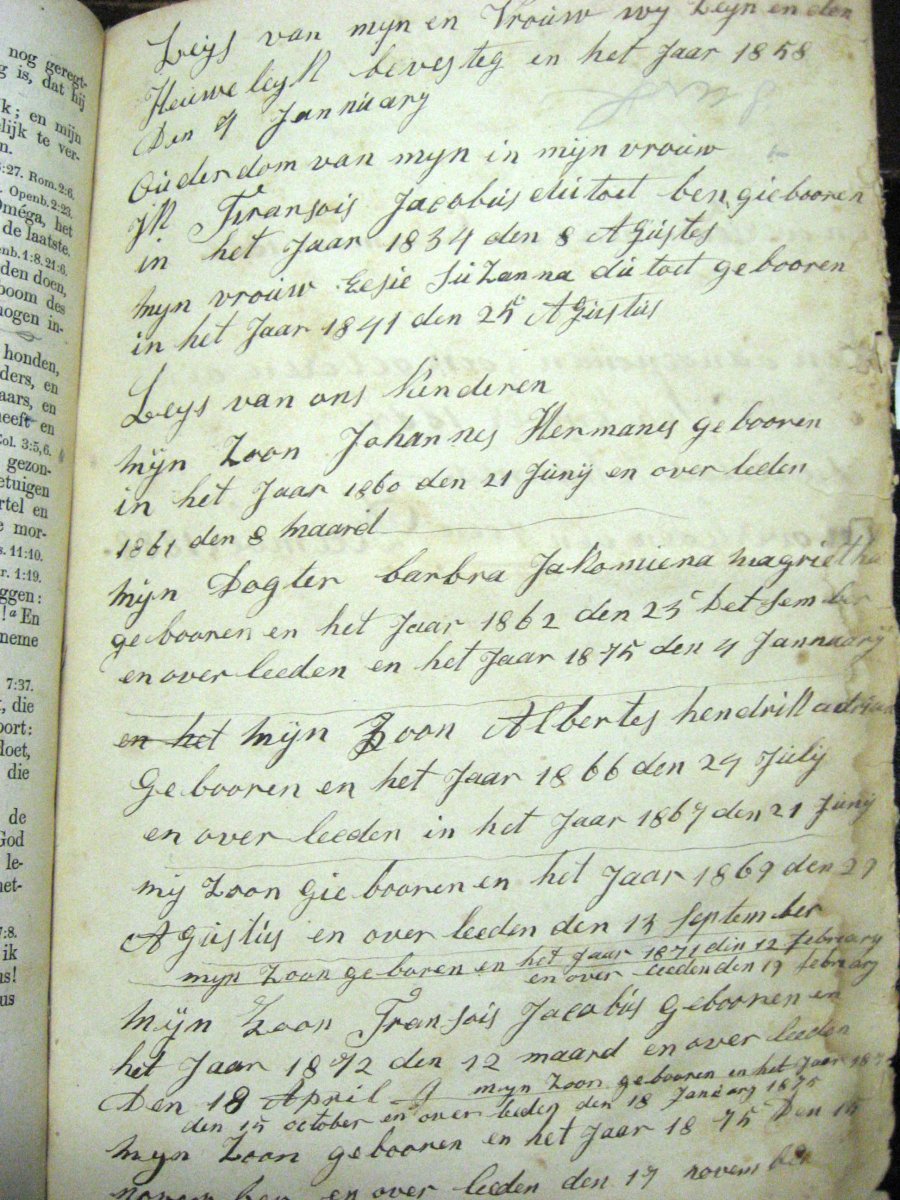 nog geregt-
g is, dat hij
k; en mijn
elijk te ver-
n.
:27. Rom. 2:6.
. Openb. 2:23.
Oméga, het
de laatste.
enb. 1:8. 21:6.
den doen,
boom des
mogen in-
honden,
ders, en
aars, en
heeft en
Col. 3:5,6.
gezon-
etuigen
rtel en
e mor-
s. 11:10.
r. 1:19.
ggen:
!a En
neme
7:37.
, die
oort:
doet,
die
de
God
le-
net-
7:8.
ik
us!
us
Leijs van myn en Vrouw wy Zeyn en den
Heuweleyk bevesteg en het Jaar 1858
Den 4 Jannuary
Ouderdom van myn in mijn vrouw
JK Fransois Jacobus du toet ben giebooren
in het Jaar 1834 den 8 AGustes
Myn vrouw Elsie SuZanna du toet gebooren
in het Jaar 1841 den 25 AGustus
Leys van ons kenderen
Mijn Zoon Johannes Hermanes gebooren
in het Jaar 1860 den 21 Junij en over leeden
1861 den 8 maard
Mijn Dogter barbra Jakomiena magrietha
gebooren en het Jaar 1862 den 25 Detsember
en over leeden en het Jaar 1875 den 4 Jannuarij
en het Mijn Zoon Albertes hendrik adrian
Gebooren en het Jaar 1866 den 24 Julij
en over leeden in het Jaar 1867 den 21 Junij
mij Zoon Giebooren en het Jaar 1869 den 29
AGustus en over leeden den 13 September
myn Zoon geboren en het Jaar 1871 din 12 february
en over leeden den 19 february
Mijn Zoon Fransois Jacobus Gebooren en
het Jaar 1872 den 12 maard en over leeden
Den 18 April
myn Zoon gebooren en het Jaar
den 15 october en over leden den 18 January 1875
Myn Zoon gebooren en het Jaar 1875 Den 15
november en over leeden den 17 november